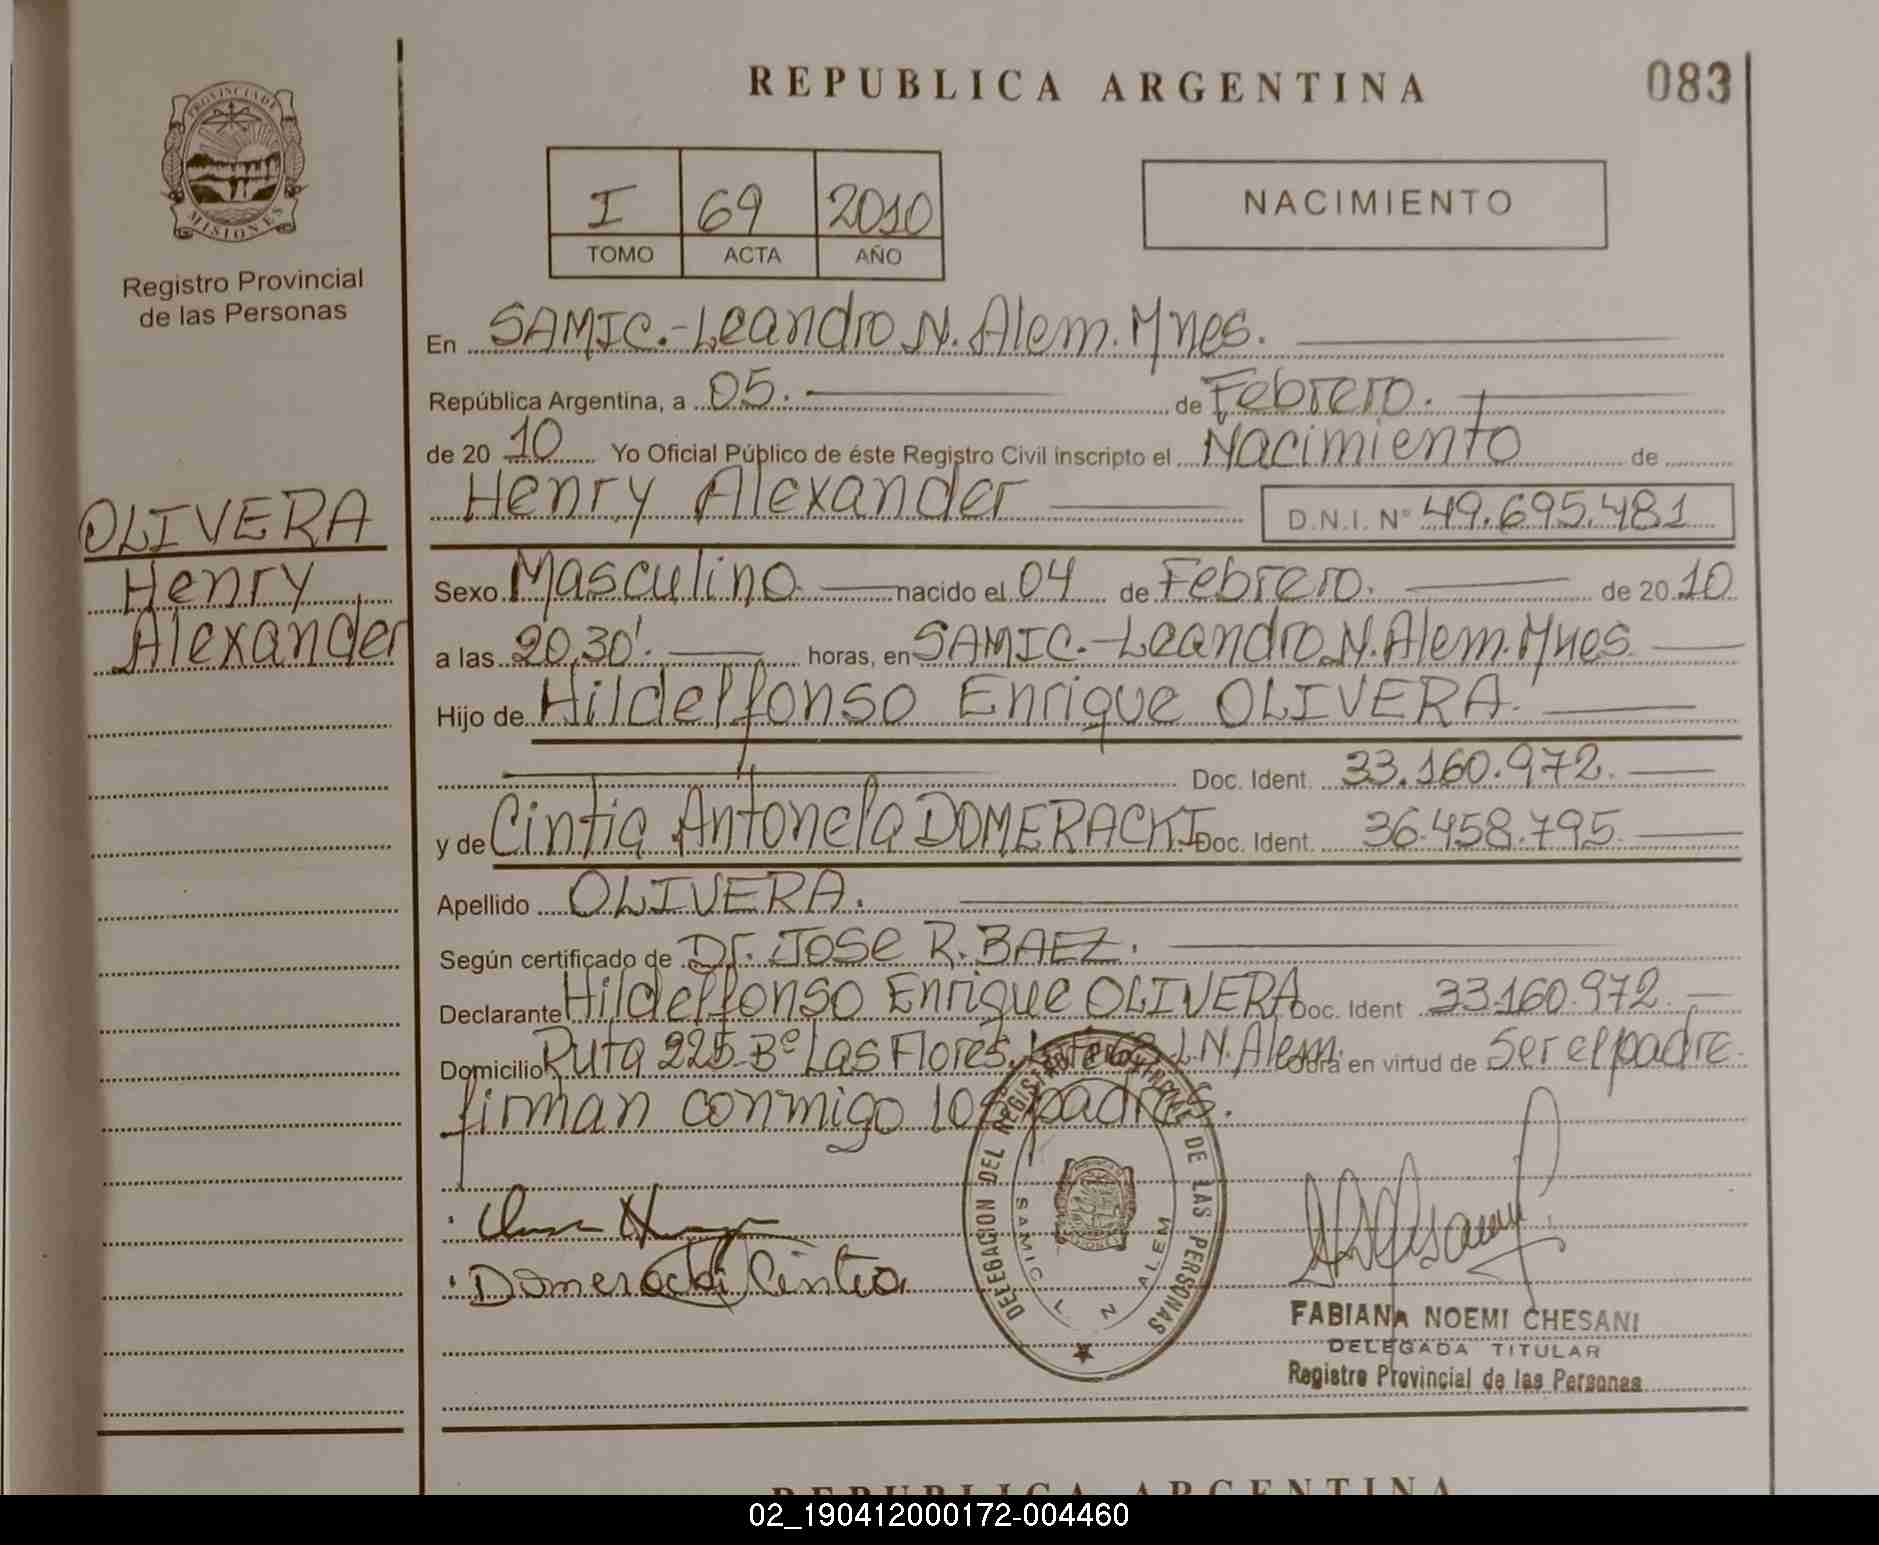 REPUBLICA ARGENTINA
083
PROVINCIA DE
MISIONES
Registro Provincial
de las Personas
I 69 2010
TOMO ACTA AÑO
NACIMIENTO
En SAMIC.-Leandro N. Alem. Mnes.
República Argentina, a 05. de Febrero.
de 20 10 Yo Oficial Público de éste Registro Civil inscripto el Nacimiento de
Henry Alexander D.N.I. Nº 49.695.481
OLIVERA
Henry
Alexander
Sexo Masculino nacido el 04 de Febrero. de 20 10
a las 20,30'. horas, en SAMIC.-Leandro N. Alem. Mnes
Hijo de Hildelfonso Enrique OLIVERA.
Doc. Ident. 33.160.972.
y de Cintia Antonela DOMERACKI Doc. Ident. 36.458.795.
Apellido OLIVERA.
Según certificado de Dr. JOSE R. BAEZ.
Declarante Hildelfonso Enrique OLIVERA Doc. Ident 33.160.972.
Domicilio Ruta 225-Bº Las Flores, L.N. Alem. Obra en virtud de Ser el padre.
firman conmigo los padres.
Domeracki Cintia
DELEGACION DEL REGISTRO PROVINCIAL DE LAS PERSONAS
SAMIC L N ALEM
FABIANA NOEMI CHESANI
DELEGADA TITULAR
Registro Provincial de las Personas
REPUBLICA ARGENTINA
02_190412000172-004460